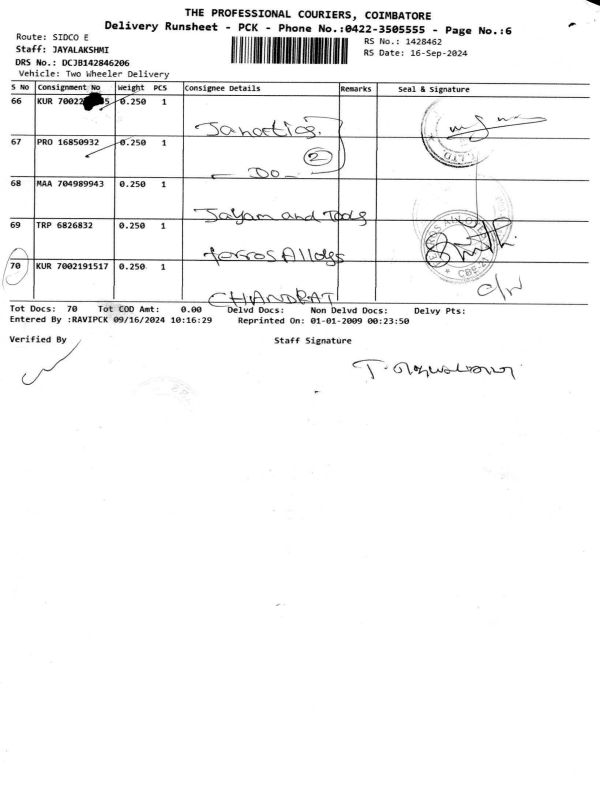 THE PROFESSIONAL COURIERS, COIMBATORE
Delivery Runsheet - PCK - Phone No.:0422-3505555 - Page No.:6
Route: SIDCO E
RS No.: 1428462
Staff: JAYALAKSHMI
RS Date: 16-Sep-2024
DRS No.: DCJB142846206
Vehicle: Two Wheeler Delivery
S No Consignment No Weight PCS Consignee Details Remarks Seal & Signature
66 KUR 70022 5 0.250 1
67 PRO 16850932 0.250 1
2
- DO -
68 MAA 704989943 0.250 1
Jayam and Tools
69 TRP 6826832 0.250 1
70 KUR 7002191517 0.250 1
C/W
Tot Docs: 70 Tot COD Amt: 0.00 Delvd Docs: Non Delvd Docs: Delvy Pts:
Entered By :RAVIPCK 09/16/2024 10:16:29 Reprinted On: 01-01-2009 00:23:50
Verified By Staff Signature